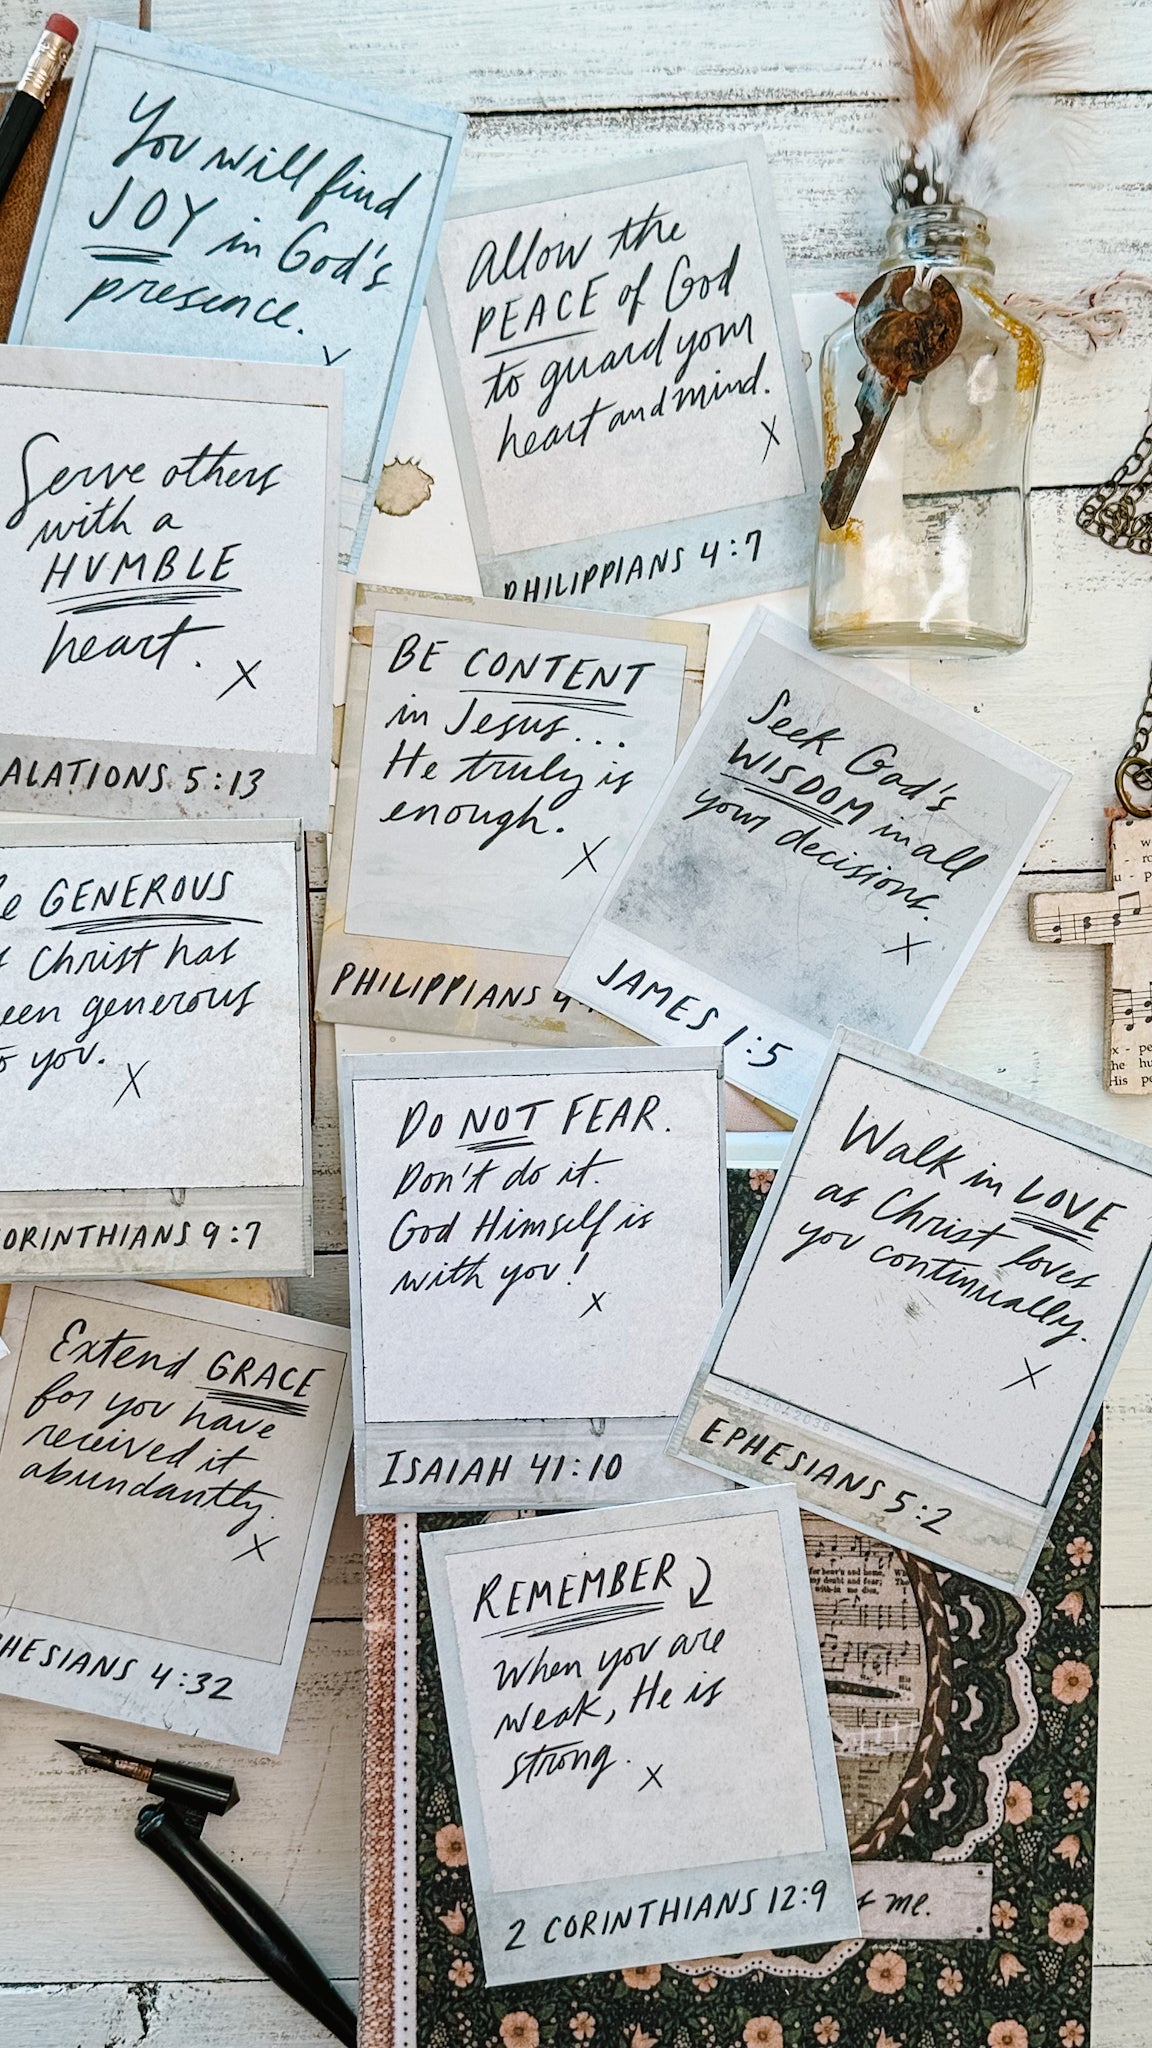 You will find
JOY in God's
presence.
Allow the
PEACE of God
to guard your
heart and mind.
X
PHILIPPIANS 4:7
Serve others
with a
HUMBLE
heart.
X
ALATIONS 5:13
BE CONTENT
in Jesus...
He truly is
enough.
X
PHILIPPIANS 4
Seek God's
WISDOM in all
your decisions.
X
JAMES 1:5
GENEROUS
Christ has
een generous
you.
X
ORINTHIANS 9:7
DO NOT FEAR.
Don't do it.
God Himself is
with you!
X
ISAIAH 41:10
Walk in LOVE
as Christ loves
you continually.
X
EPHESIANS 5:2
Extend GRACE
for you have
received it
abundantly.
X
HESIANS 4:32
REMEMBER
When you are
weak, He is
strong.
X
2 CORINTHIANS 12:9
me.
for heav'n and home,
my doubt and fear;
with-in me dies.
x - pe
he hu
His pe